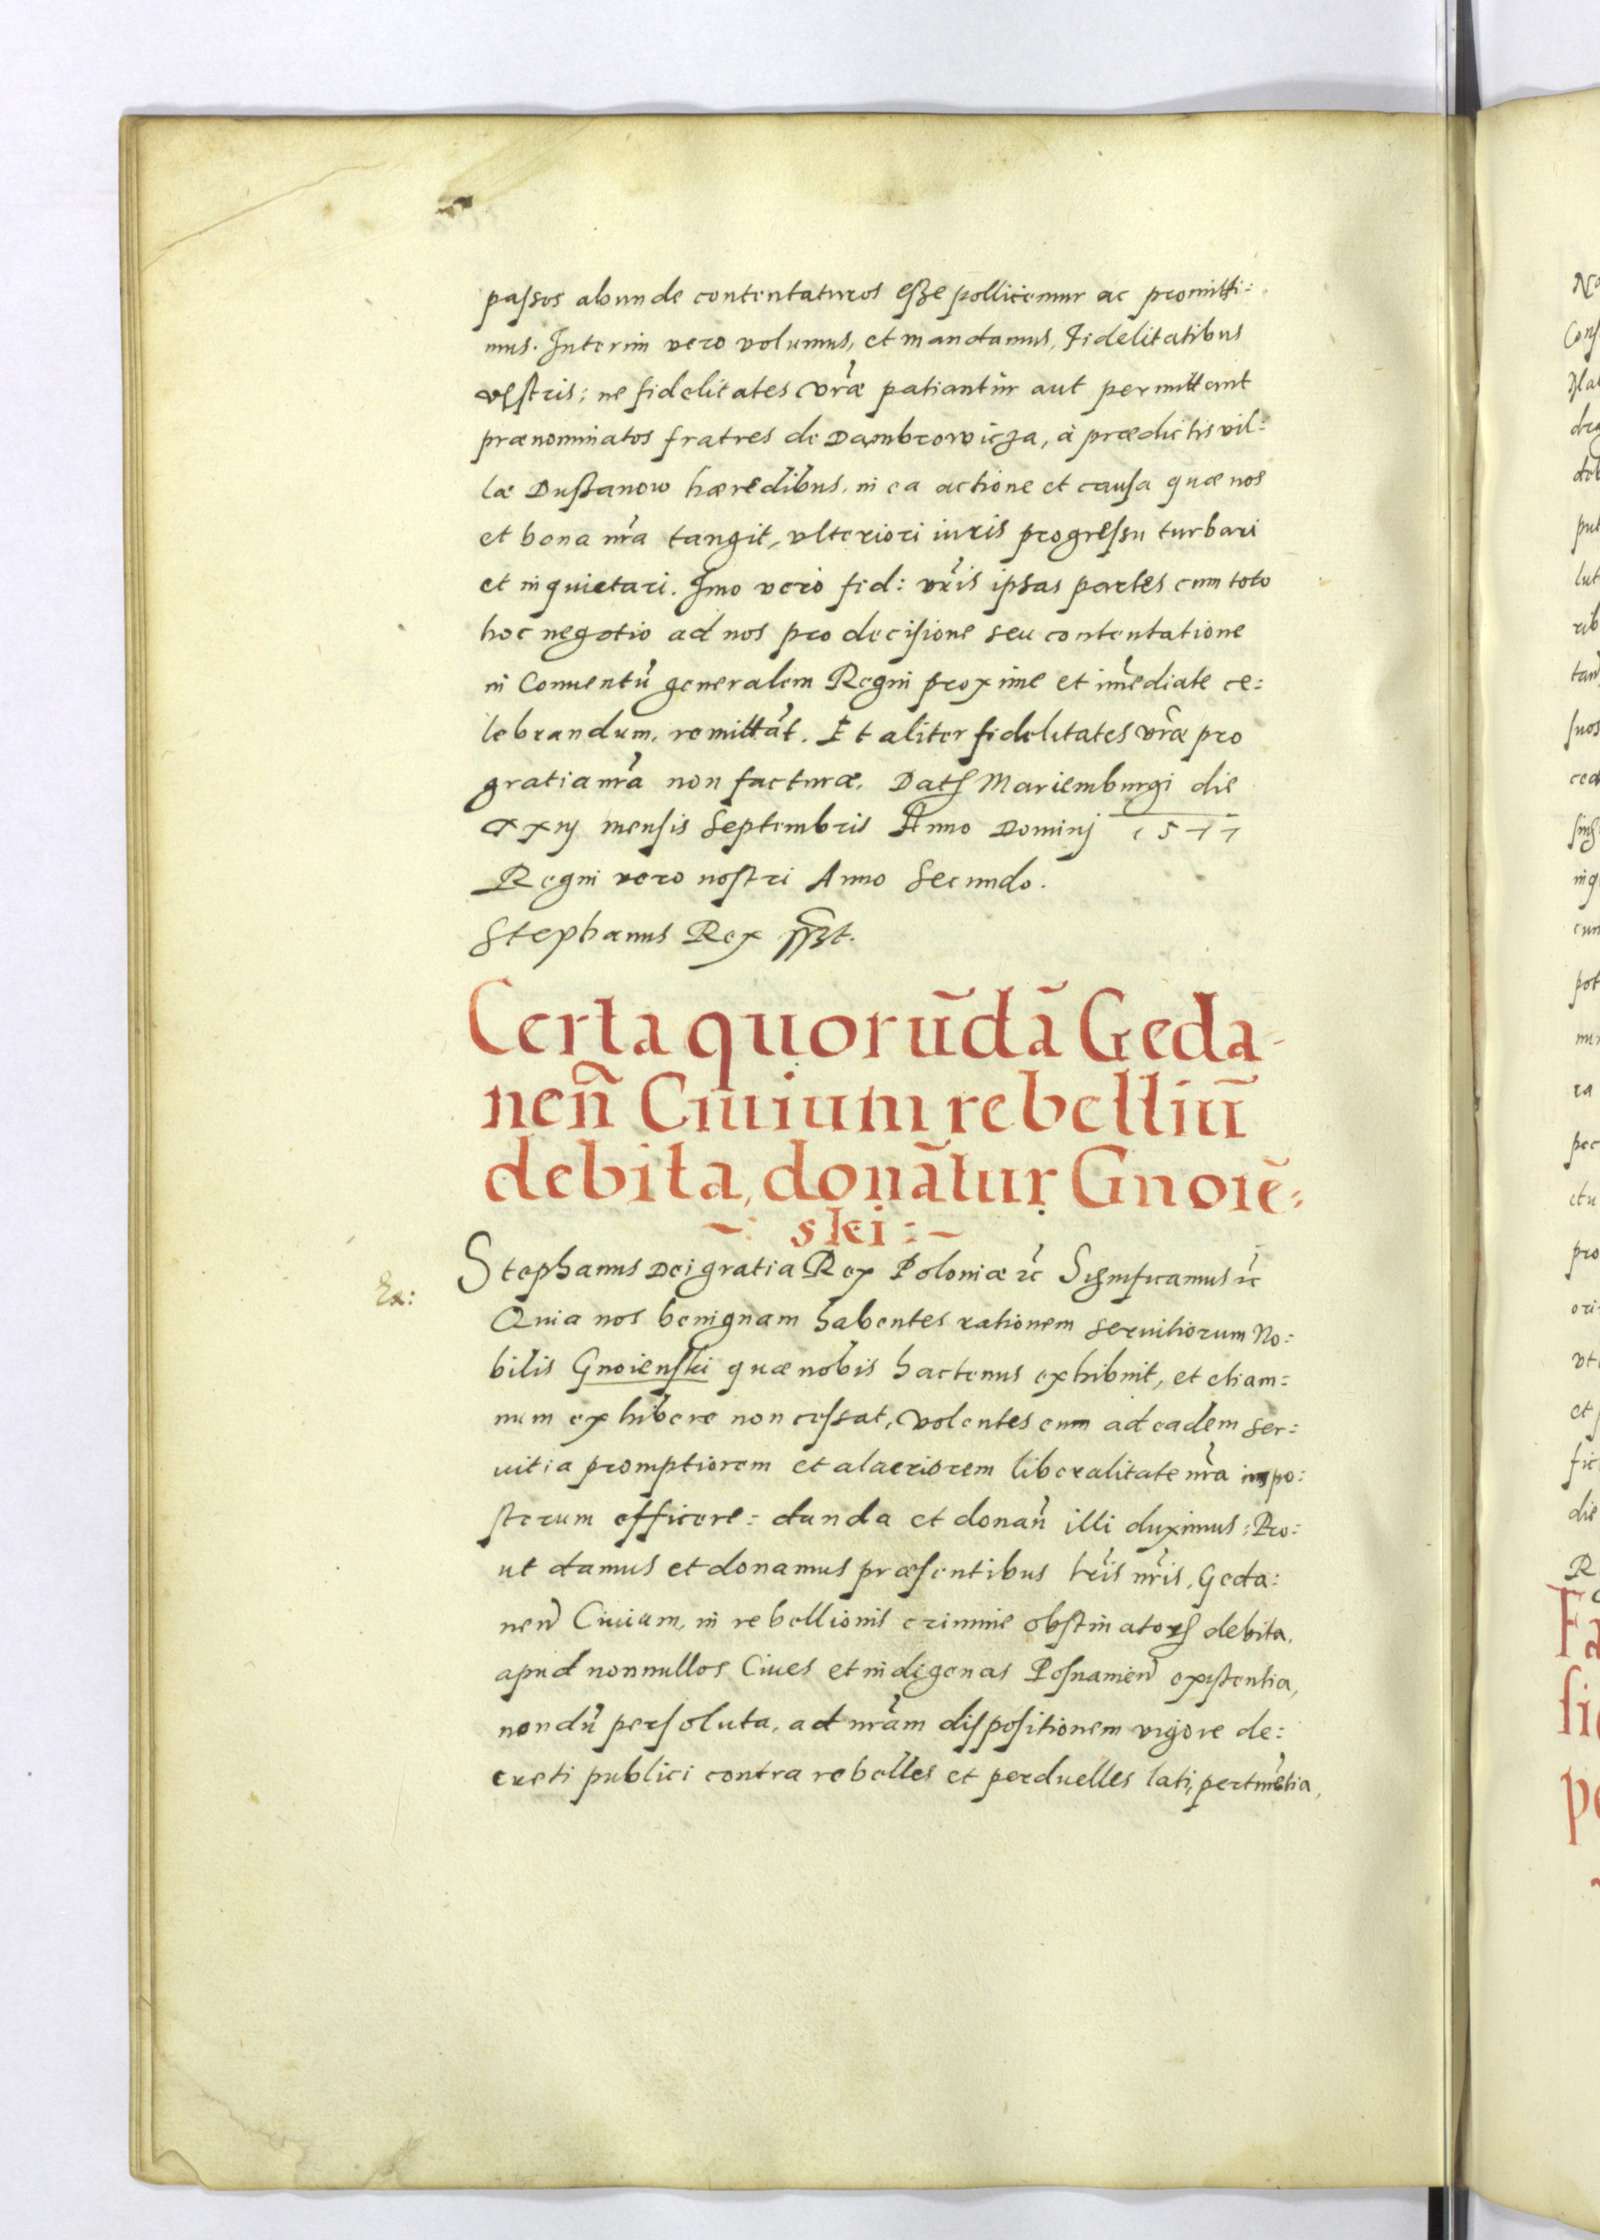 passos abunde contentaturos esse pollicemur ac promitti:
mus. Interim vero volumus, et mandamus, Fidelitatibus
vestris; ne fidelitates vr̃æ patiantur aut permittant
prænominatos fratres de Dambrowicza, à prædictis vil:
læ Dustanow hæredibus, in ea actione et causa quæ nos
et bona nr̃a tangit, ulteriori iuris progressu turbari
et inquietari. Imo vero fid: vr̃is ipsas partes cum toto
hoc negotio ad nos pro decisione seu contentatione
in Conventũ generalem Regni proxime et im̃ediate ce:
lebrandum, remittãt. Et aliter fidelitates vr̃æ pro
gratia nr̃a non facturæ. Datȝ Mariemburgi die
mensis Septembris Anno Dominj 1577
Regni vero nostri Anno Secundo.
Stephanus Rex
Certa quorũdã Geda-
nen̄ Civium rebelliũ
debita, donãtur Gnoiẽ:
~: ski :~
Ex:
Stephanus Dei gratia Rex Poloniæ ꝛc̃ Significamus ꝛc̃
Quia nos benignam habentes rationem servitiorum No:
bilis Gnoienski quæ nobis hactenus exhibuit, et etiam:
num exhibere non cessat, volentes eum ad eadem ser:
vitia promptiorem et alacriorem liberalitate nr̃a inspo:
sterum efficere: danda et donan̄ illi duximus: Pro:
ut damus et donamus præsentibus lr̃is nr̃is, Geda:
nen̄ Civium, in rebellionis crimine obstinatoꝝ debita,
apud nonnullos Cives et indigenas Posnamien̄ existentia,
nondũ persoluta, ad nr̃am dispositionem vigore de:
creti publici contra rebelles et perduelles lati, pertinẽtia,